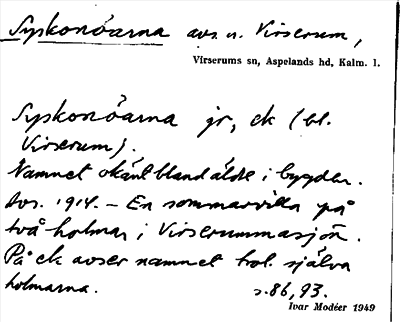 Syskonöarna avs. n. Virserum,
Virserums sn, Aspelands hd, Kalm. l.
Syskonöarna jr, ek (bl.
Virserum).
Namnet okänt bland äldre i bygden.
Avs. 1914. – En sommarvilla på
två holmar i Virserummasjön.
På ek avser namnet trol. själva
holmarna. s. 86, 93.
Ivar Modéer 1949